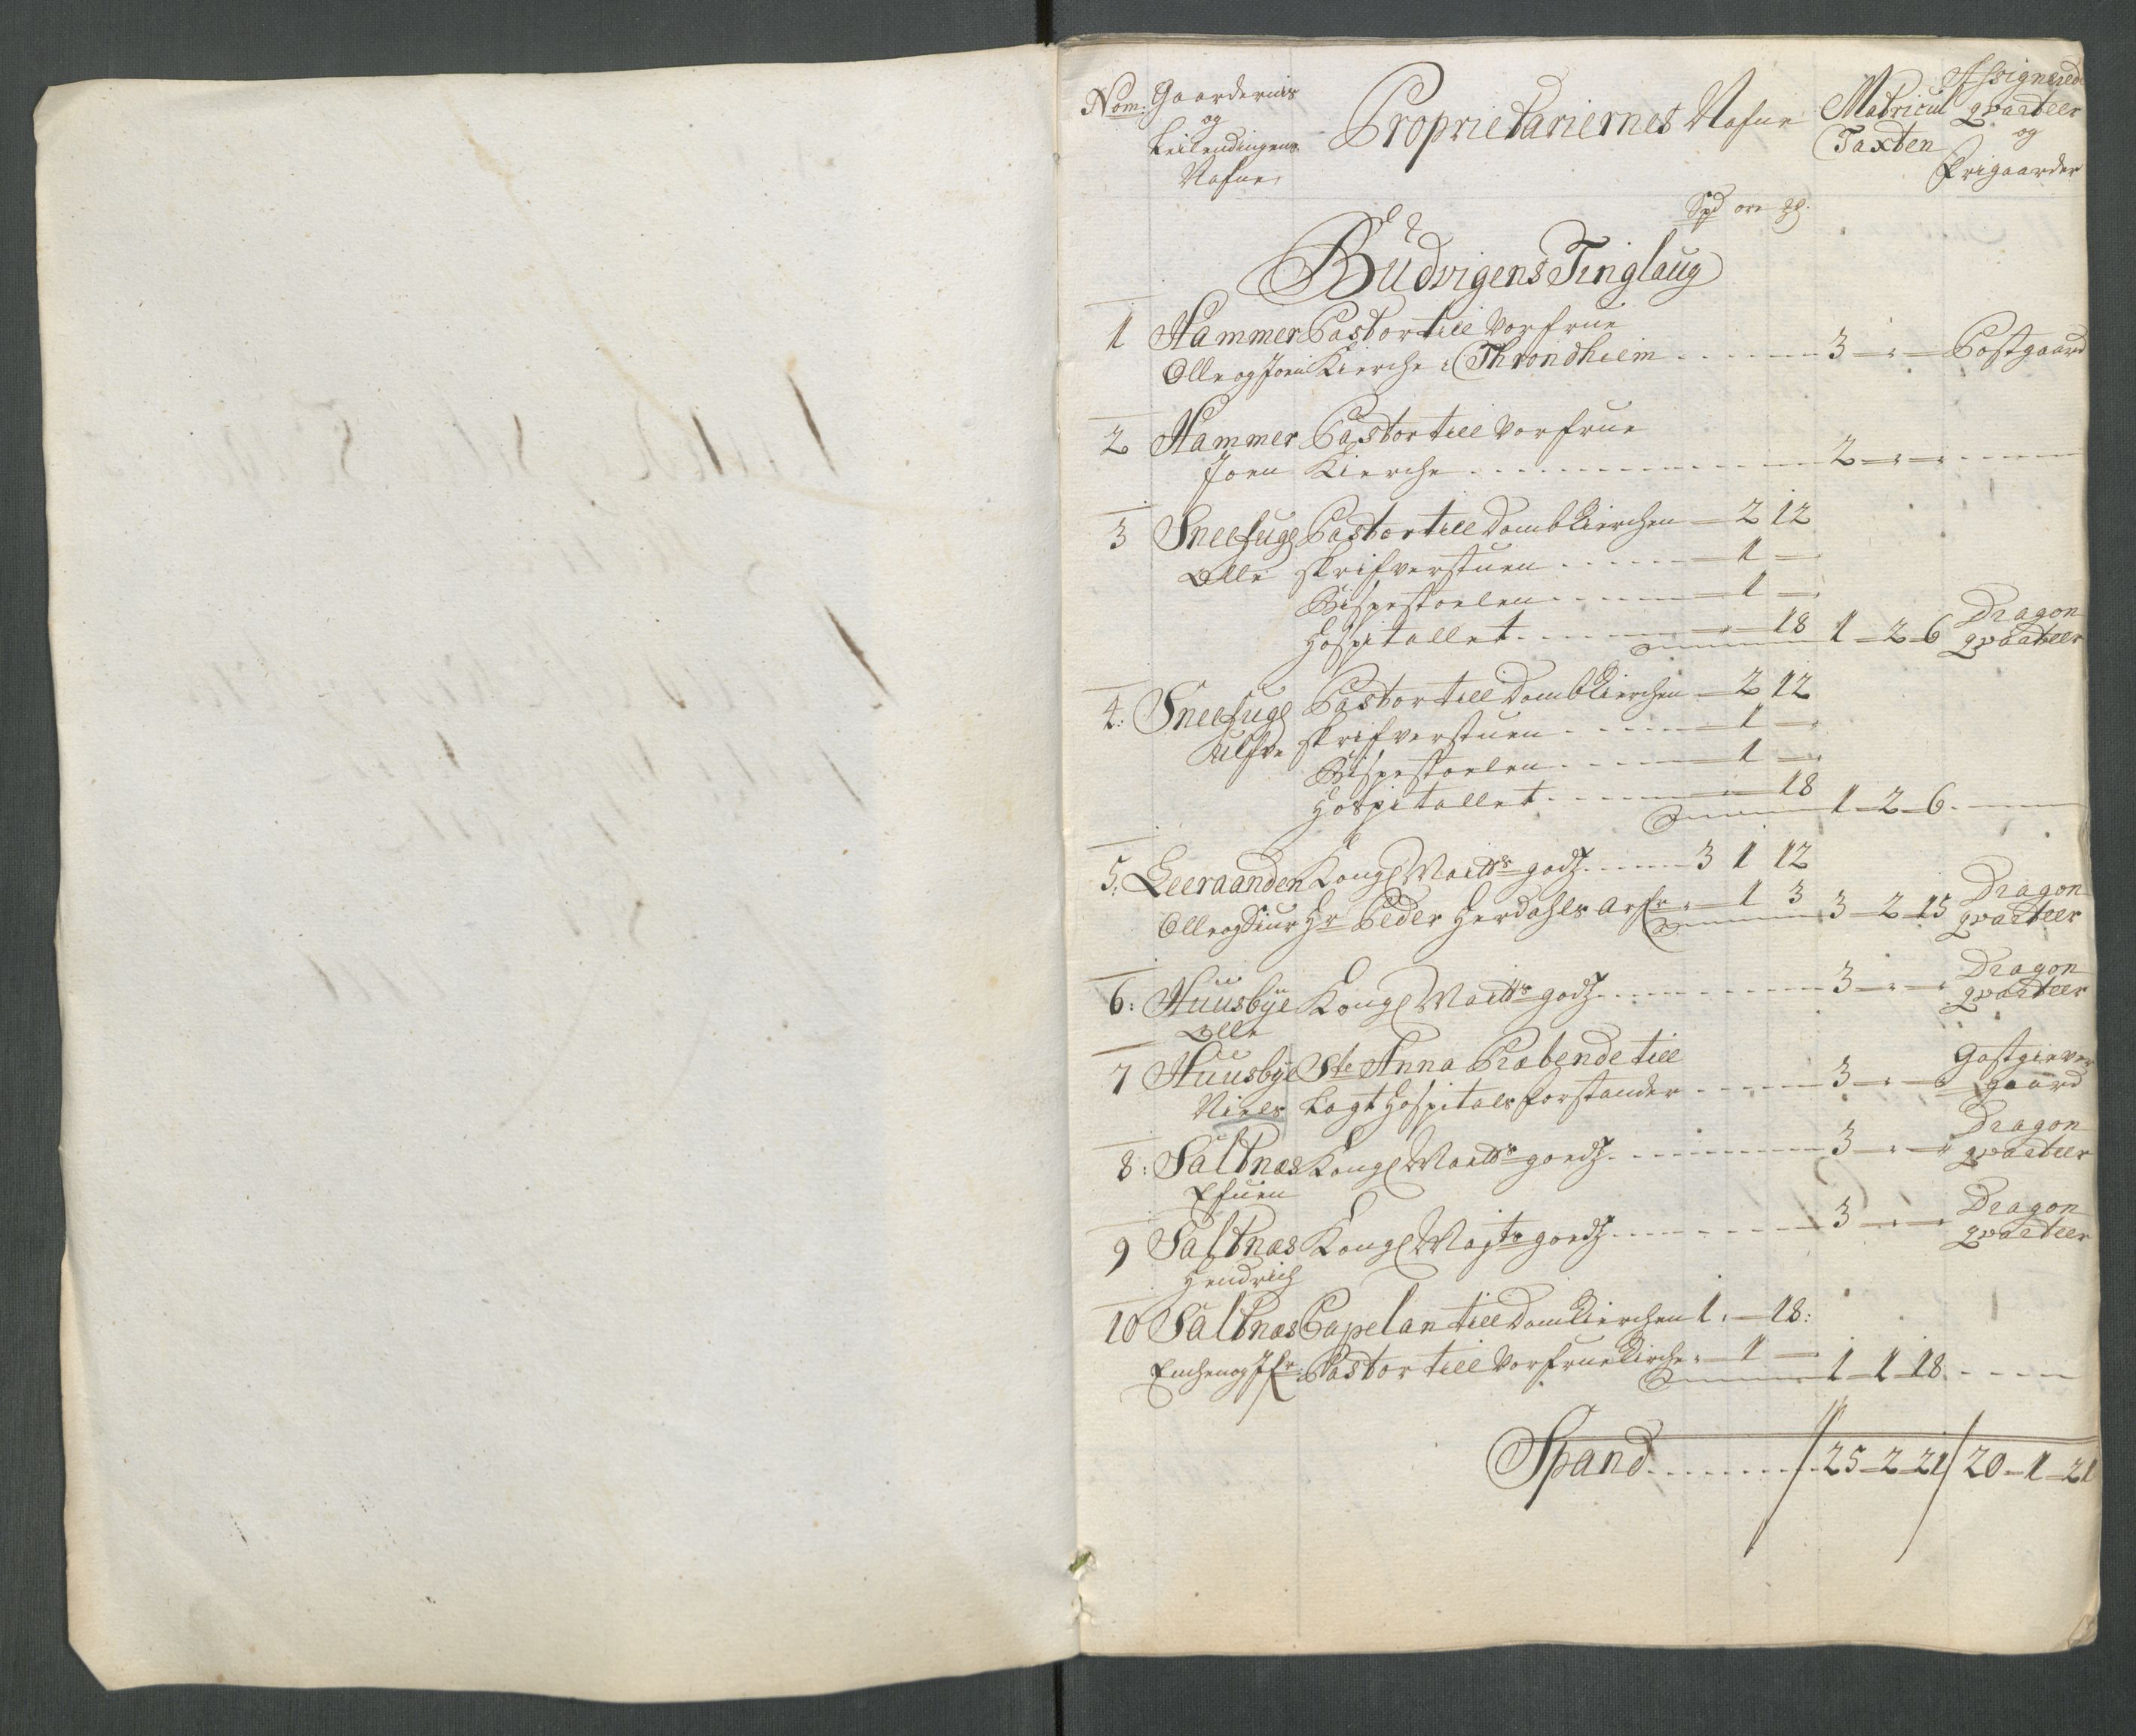 Nom: Gaardernis og Leilendingens Nafne
Proprietariernes Nafne
Matricul Taxten
Assignerede qvarteer og Frigaarder
Spd ore
Budvigens Tinglaug
1 Hammer Pastor till Vorfrue
Olle og Joen Kierche i Throndhiem 3 Postgaard
2 Hammer Pastor till Vorfrue
Joen Kierche 2
3 Sneefugl Pastor till Dombkierchen 2 12
Olle skrifverstuen 1
Bispestoelen 1
Hospitallet 18 1 2 6 Dragon qvarteer
4: Sneefugl Pastor till Dombkierchen 2 12
skrifverstuen 1
Bispestoelen 1
Hospitallet 18
1 2 6
5: Leeraanden Kongl Maitts godz 3 1 12
Olle og Siur Hr Peder Herdahls Arfr: 1 3 3 2 15 Dragon qvarteer
6: Huusbye Kongl Maitts godz 3 Dragon qvarteer
Olle
7 Huusbye Ste Anna Præbende till
Niels Lagt Hospitals forstander 3 Gastgiever gaard
8: Saltnæs Kongl Maitts goedz 3 Dragon qvarteer
Efuen
9 Saltnæs Kongl Mayts goedz 3 Dragon qvarteer
Hendrich
10 Saltnæs Capelan till Domkierchen 1 18:
Pastor till Vorfruekirche 1
1 1 18
Spand 25 2 21 20 1 21